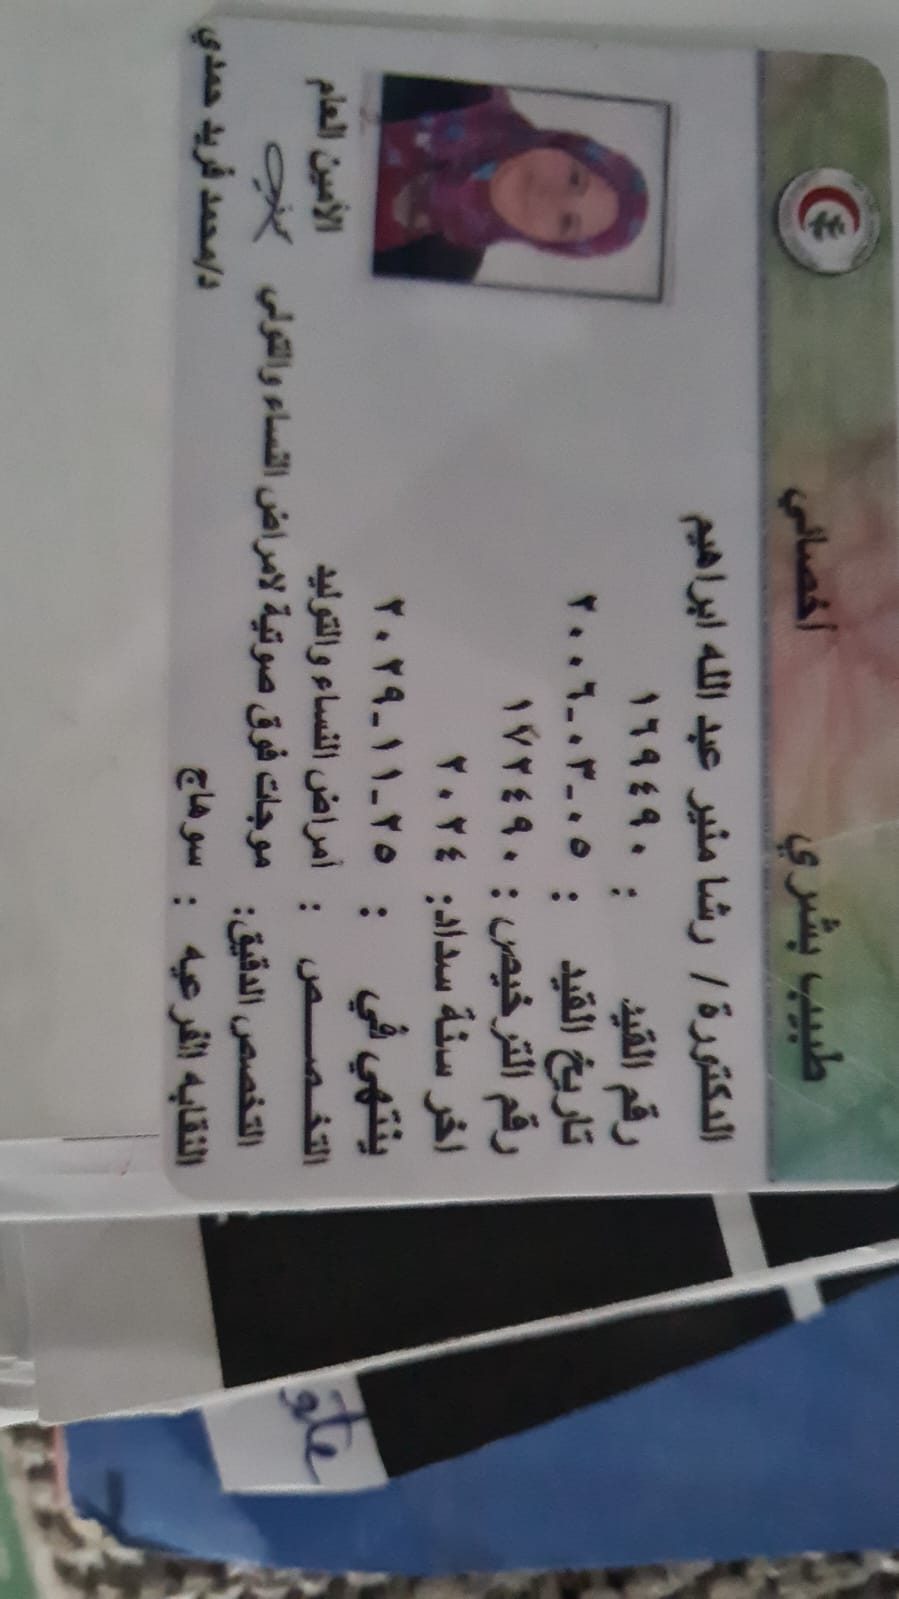 طبيب بشري أخصائي
الدكتورة / رشا منير عبد الله ابراهيم
رقم القيد : ١٦٩٤٩٠
تاريخ القيد : ٢٠٠٦-٠٣-٠٥
رقم الترخيص : ١٧٢٤٩٠
اخر سنة سداد: ٢٠٢٤
ينتهي في : ٢٠٢٩-١١-٢٥
التخـصــص : أمراض النساء والتوليد
الأمين العام
التخصص الدقيق: موجات فوق صوتية لامراض النساء والتولى
النقابه الفرعيه : سوهاج
د/محمد فريد حمدي